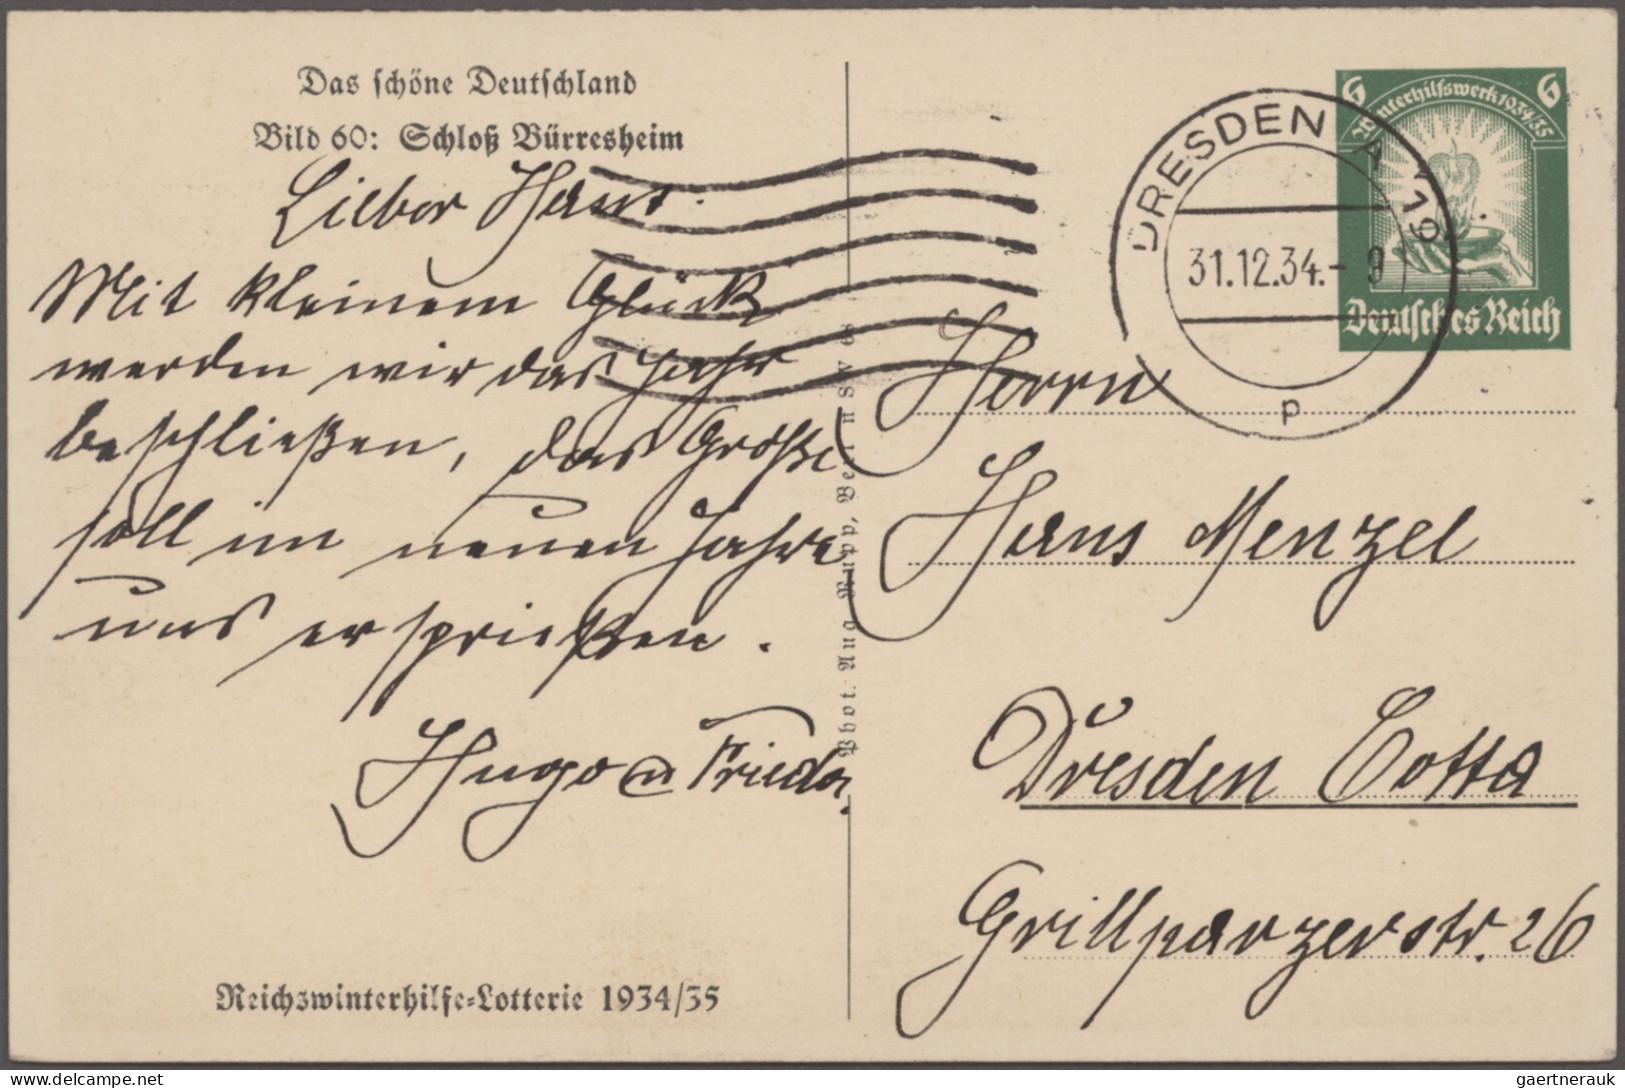 Das schöne Deutschland
Bild 60: Schloß Bürresheim
Lieber Hans.
Mit kleinem Glück
werden wir das Jahr
beschließen, das Große
soll im neuen Jahre
uns ersprießen.
Hugo u Frieda.
Reichswinterhilfe-Lotterie 1934/35
Phot. Aug. Rupp, Berlin SW 68
6 6
Winterhilfswerk 1934/35
Deutsches Reich
DRESDEN A 19
31.12.34.- 9
p
Herrn
Hans Menzel
Dresden Cotta
Grillparzerstr. 26
gaertnerauk
delcampe.net